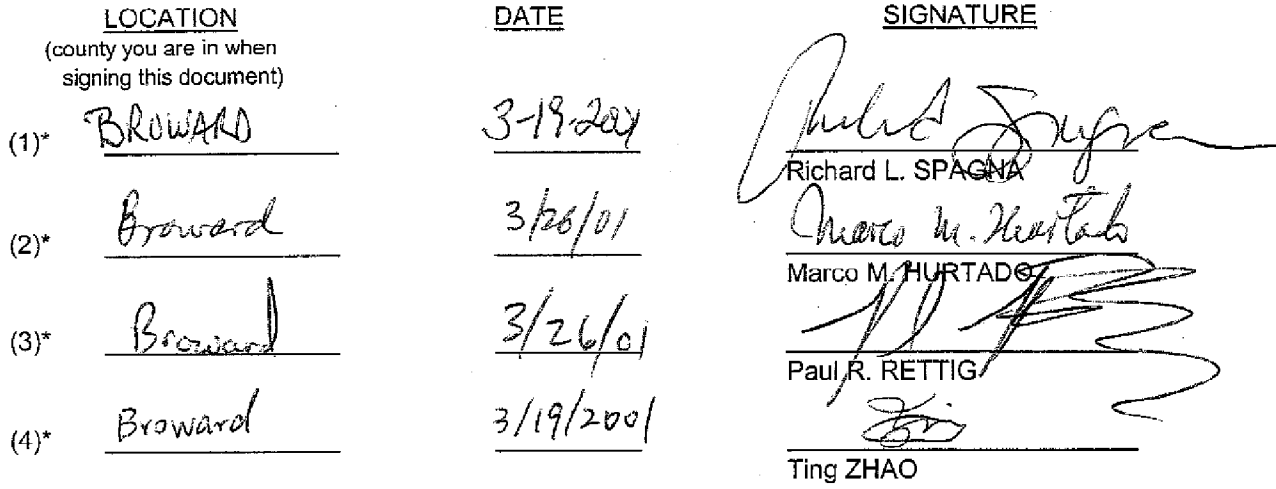 LOCATION DATE SIGNATURE
(county you are in when
signing this document)
(1)* BROWARD 3-19-2001
Richard L. SPAGNA
(2)* Broward 3/26/01 Marco M. Hurtado
Marco M. HURTADO
(3)* Broward 3/26/01
Paul R. RETTIG
(4)* Broward 3/19/2001
Ting ZHAO